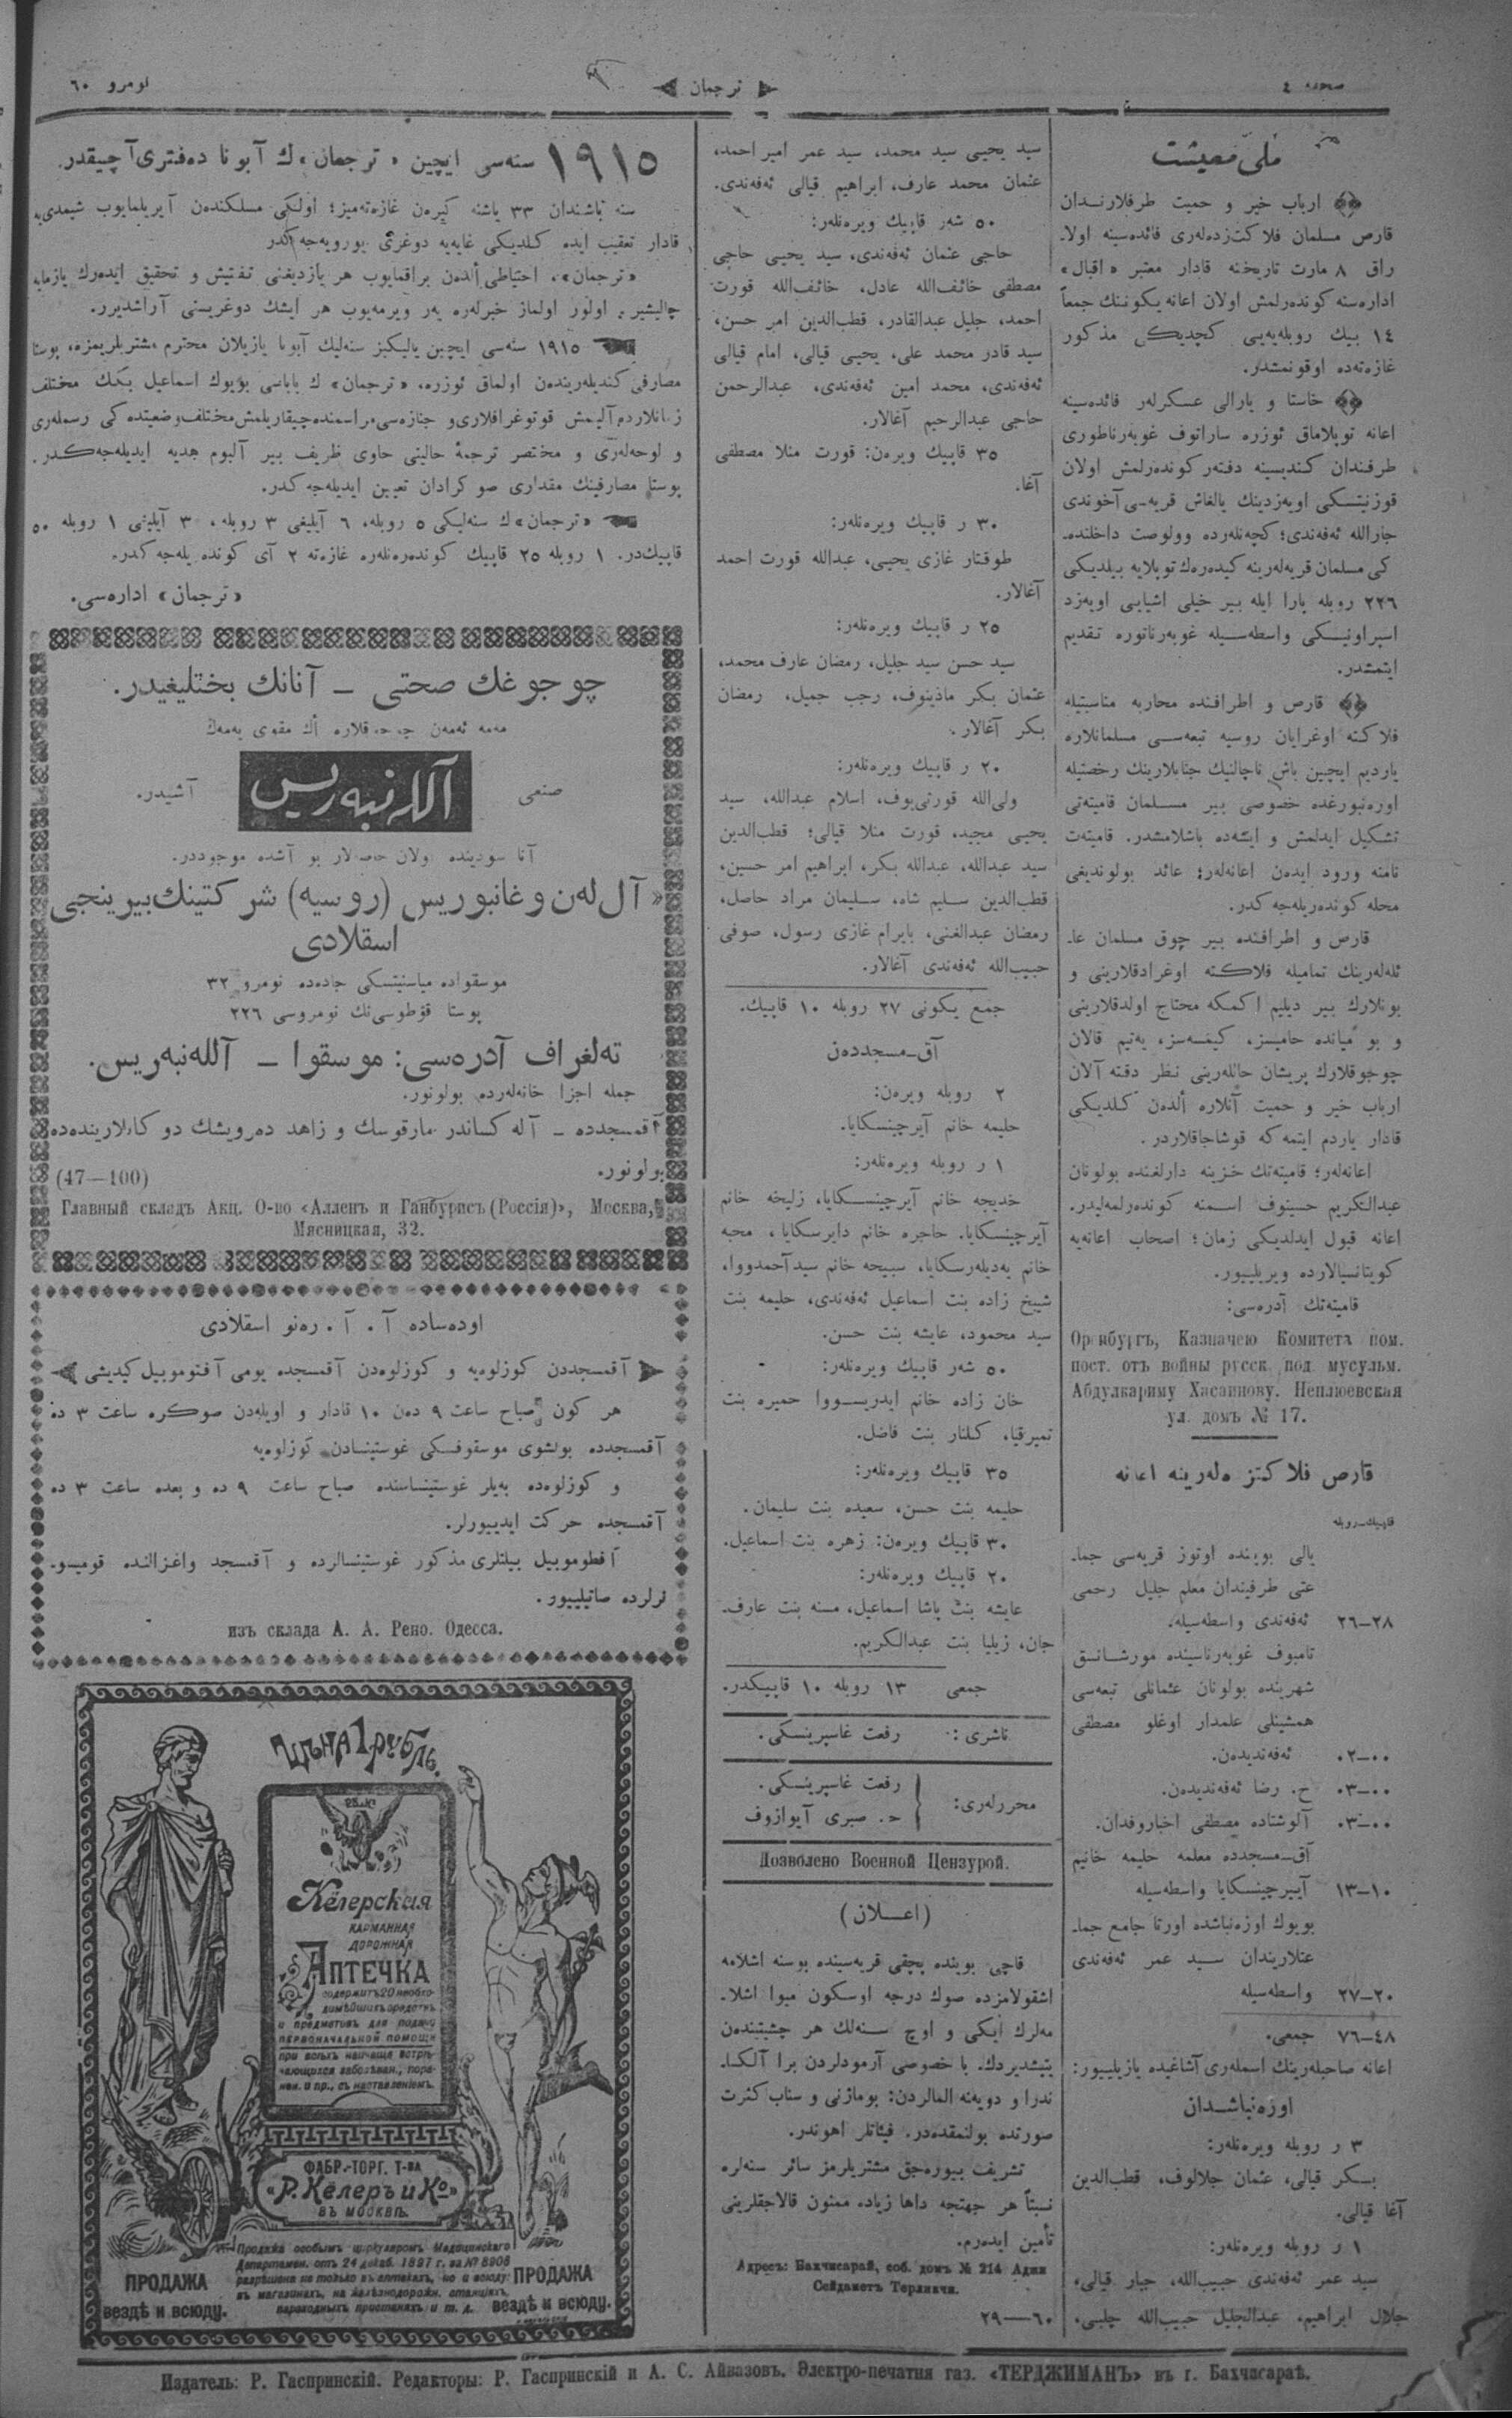 صحیفه ٤
ترجمان
نومرو ٦٠
ملی معیشت
ارباب خیر و حمیت طرفلارنـدان
قارص مسلمان فلاکت‌زده‌له‌ری فائده‌سینه اولا-
راق ٨ مارت تاریخنه قادار معتبر «اقبال»
اداره‌سنه کونده‌رلمش اولان اعانه یکوننڭ جمعاً
١٤ بیڭ روبله‌یه‌یی کچدیکی مذکور
غازه‌ته‌ده اوقونمشدار.
خاستا و یارالی عسـکرلەر فائده‌سینه
اعانه توپلاماق ئوزره ساراتوف غوبه‌رناطوری
طرفندان کندیسینه دفتەر کونده‌رلمش اولان
قوزنیتسـکی اویه‌زدینڭ یالغاش قریه‌سی آخوندی
جارالله ئه‌فه‌ندی؛ کچه‌نله‌رده وولوصت داخلنده-
کی مسلمان قریه‌لەرینه کیده‌رەك توپلایه بیلدیکی
٢٢٦ روبله پارا ایله بیر خیلی اشیایی اویه‌زد
اسپراونیـکی واسطه‌سـیله غوبه‌رناتوره تقدیم
ایتمشدر.
قارص و اطرافنده محاربه مناسبتیله
فلاکته اوغرایان روسیه تبعه‌سـی مسلمانلاره
یاردیم ایچین باش ناچالنیك جنابلارینك رخصتیله
اوره‌نبورغده خصوصی بیر مسـلمان قامیته‌تی
تشکیل ایدلمش و ایشه‌ده باشلامشدر. قامیته‌ت
نامنه ورود ایدەن اعانه‌لەر؛ عائد بولوندیغی
محله کوندەریله‌جه کدر.
قارص و اطرافنده بیر چوق مسلمان عا-
ئله‌لەرینك تمامیله فلاکته اوغرادقلارینی و
بونلارك بیر دیلیم اکمکه محتاج اولدقلارینی
و بو میانده حامیسز، کیمسه‌سز، یەتیم قالان
چوجوقلارك پریشان حاللەرینی نظر دقته آلان
ارباب خیر و حمیت آنلاره ألدەن کـلدیکی
قادار یاردم ایتمه‌که قوشاجاقلاردر.
اعانه‌لەر؛ قامیته‌تك خـزینه دارلغنده بولونان
عبدالکریم حسینوف اسـمنه کوندەرلمەلیدر.
اعانه قبول ایدلدیکی زمان؛ اصحاب اعانه‌یه
کویتانسیالارده ویریلییور.
قامیته‌تك آدره‌سی:
Оренбургъ, Казначею Комитета пом.
пост. отъ войны русск. под. мусульм.
Абдулкариму Хасаинову. Неплюевская
ул. домъ № 17.
قارص فلاکتزده‌لەرینه اعانه
قاپیك-روبله
یالی بوینده اوتوز قریه‌سی جما-
عتی طرفیندان معلم جلیل رحمی
ئه‌فه‌ندی واسطه‌سیله. ٢٨—٢٦
تامبوف غوبه‌رناسینده مورشـانسق
شهرینده بولونان عثمانلی تبعه‌سی
همشینلی علمدار اوغلو مصطفی
ئه‌فه‌ندیدەن. ٠٠—٠٢
ح. رضا ئه‌فه‌ندیدەن. ٠٠—٠٣
آلوشتاده مصطفی اخباروفدان. ٠٠—٠٣
آق‌-مسجدده معلمه حلیمه خانیم
آییرچینسـکایا واسطه‌سیله ١٠—١٣
بویوك اوزه‌نباشده اورتا جامع جما-
عتلاریندان سـید عمر ئه‌فه‌ندی
واسطه‌سیله ٢٠—٢٧
جمعی. ٤٨—٧٦
اعانه صاحبلەرینك اسملەری آشاغیده یازیلییور:
اوزه‌نباشـدان
٣ ر روبله ویرەنلەر:
بـکر قیالی، عثمان جلالوف، قطب‌الدین
آغا قیالی.
١ ر روبله ویرەنلەر:
سید عمر ئه‌فه‌ندی حبیب‌الله، جبار قیالی،
جلال ابراهیم، عبدالجلیل حبیب‌الله چلبی،
سید یحیی سید محمد، سید عمر امیر احمد،
عثمان محمد عارف، ابراهیم قیالی ئه‌فه‌ندی.
٥٠ شەر قاپیك ویرەنلەر:
حاجی عثمان ئه‌فه‌ندی، سید یحیی حاجی
مصطفی خائف‌الله عادل، خائف‌الله قورت
احمد، جلیل عبدالقادر، قطب‌الدین امر حسن،
سید قادر محمد علی، یحیی قیالی، امام قیالی
ئه‌فه‌ندی، محمد امین ئه‌فه‌ندی، عبدالرحمن
حاجی عبدالرحیم آغالار.
٣٥ قاپیك ویرەن: قورت منلا مصطفی
آغا.
٣٠ ر قاپیك ویرەنلەر:
طوقتار غازی یحیی، عبدالله قورت احمد
آغالار.
٢٥ ر قاپیك ویرەنلەر:
سید حسن سید جلیل، رمضان عارف محمد،
عثمان بکر ماذینوف، رجب جمیل، رمضان
بکر آغالار.
٢٠ ر قاپیك ویرەنلەر:
ولی‌الله قورتی‌یوف، اسلام عبدالله، سید
یحیی مجید، قورت منلا قیالی؛ قطب‌الدین
سید عبدالله، عبدالله بکر، ابراهیم امر حسین،
قطب‌الدین سـلیم شاه، سـلیمان مراد حاصل،
رمضان عبدالغنی، بایرام غازی رسول، صوفی
حبیب‌الله ئه‌فه‌ندی آغالار.
جمع یکونی ٢٧ روبله ١٠ قاپیك.
آق-مسجددەن
٢ روبله ویرەن:
حلیمه خانم آیرچینسـکایا.
١ ر روبله ویرەنلەر:
خدیجه خانم آیرچینسـکایا، زلیخه خانم
آیرچینسـکایا. حاجره خانم دایرسکایا، محبه
خانم یەدیلەرسکایا، سبیحه خانم سیدآحمدووا،
شیخ زاده بنت اسماعیل ئه‌فه‌ندی، حلیمه بنت
سید محمود، عایشه بنت حسن.
٥٠ شەر قاپیك ویرەنلەر:
خان زاده خانم ایدریسـووا حمیره بنت
تمیرقیا، کـلنار بنت فاضل.
٣٥ قاپیك ویرەنلەر:
حلیمه بنت حسن، سعیده بنت سلیمان.
٣٠ قاپیك ویرەن: زهره بنت اسماعیل.
٢٠ قاپیك ویرەنلەر:
عایشه بنت پاشا اسماعیل، مسنه بنت عارف-
جان، زیلیا بنت عبدالکریم.
جمعی ١٣ روبله ١٠ قاپیکدر.
ناشری: رفعت غاسپرینسکی.
محررلەری: رفعت غاسپرینسکی.
ح. صبری آیوازوف
Дозволено Военной Цензурой.
(اعـلان)
قاچی بوینده پچقی قریه‌سینده بوسنه اشلامه
اشقولامزده صوك درجه اوسکون میوا اشلا-
مه‌لرك ایکی و اوچ سـنه‌لك هر چشیتندن
یتیشدیردك. با خصوصی آرمودلردن برا آلکـا-
ندرا و دویه‌نه المالردن: بوماژنی و سناب کثرت
صورتده بولنمقده‌در. فیئاتلر اهوندر.
تشریف بیوره‌جق مشتریلرمز سائر سنه‌لره
نسبتاً هر جهتجه داها زیاده ممنون قالاجقلرینی
تأمین ایده‌رم.
Адресъ: Бахчисарай, соб. домъ № 214 Аджи
Сейдаметъ Терликчи.
٦٠—٢٩
١٩١٥ سنه‌سی ایچین «ترجمان»ك آبونا ده‌فتری آچیقدر.
سنه باشندان ٣٣ یاشنه کیرەن غازه‌ته‌میز؛ اولکی مسلکندەن آیریلمایوب شیمدی‌یه
قادار تعقیب ایده کـلدیکی غایه‌یه دوغری یورویه‌جه کدر
«ترجمان»، احتیاطی ألدەن براقمایوب هر یازدیغنی تفتیش و تحقیق ایدەرك یازمایه
چالیشیر. اولور اولماز خبرلەره یەر ویرمه‌یوب هر ایشك دوغریسنی آراشدیرر.
١٩١٥ سنه‌سی ایچین یالیکیز سنه‌لیك آبونا یازیلان محترم مشتریلریمزه، پوستا
مصارفی کندیلەریندەن اولماق ئوزره، «ترجمان»ك باباسی بویوك اسماعیل بكك مختلف
زمانلارده آلیمش فوتوغرافلاری و جنازه‌سی مراسمنده چیقاریلمش مختلف وضعیتده کی رسملەری
و لوحه‌لەری و مختصر ترجمۀ حالینی حاوی ظریف بیر آلبوم هدیه ایدیله‌جه‌کـدر.
پوستا مصارفینك مقداری صوکرادان تعیین ایدیله‌جه کدر.
«ترجمان»ك سنه‌لیکی ٥ روبله، ٦ آیلیغی ٣ روبله، ٣ آیلیغی ١ روبله ٥٠
قاپیك‌در. ١ روبله ٢٥ قاپیك کوندەرەنلەره غازه‌ته ٢ آی کونده‌ریله‌جه کدر.
«ترجمان» اداره‌سی.
چوجوغك صحتی — آنانك بختلیغیدر.
مه‌مه ئه‌مه‌ن چوجوقلاره أك مقوی یەمەك
صنعی آللەنبەریس آشیدر.
آنا سودینده اولان خاصه‌لار بو آشده موجوددر.
«آل‌لەن و غانبوریس (روسیه) شرکتینك بیرینجی
اسقلادی
موسقواده میاسنیتسکی جاده‌ده نومرو ٣٢
پوستا قوطوسی‌نك نومروسی ٢٢٦
تەلغراف آدره‌سی: موسقوا — آللەنبەریس.
جمله اجزا خانه‌لەرده بولونور.
آقمسجدده — آله‌کساندر مارقوسك و زاهد دەرویشك دوکانلارینده‌ده
بولونور.
(47—100)
Главный складъ Акц. О-во «Алленъ и Ганбурисъ (Россія)», Москва,
Мясницкая, 32.
اوده‌ساده آ. آ. ره‌نو اسقلادی
آقمسجددن کوزلوه‌یه و کوزلوه‌دن آقمسجده یومی آفتوموبیل کیدیشی
هر کون صباح ساعت ٩ دەن ١٠ قادار و اویلەدن صوکره ساعت ٣ ده
آقمسجدده بولشوی موسقوفسکی غوستینیسادن کوزلوه‌یه
و کوزلوه‌ده بەیلر غوستینیساسنده صباح ساعت ٩ ده و بعده ساعت ٣ ده
آقمسجده حرکت ایدییورلر.
آفطوموبیل بیلتلری مذکور غوستینیسالرده و آقمسجد واغزالنده قومیسو-
نرلرده صاتیلییور.
изъ склада А. А. Рено. Одесса.
Цѣна 1 рубль.
Кёлерская
карманная
дорожная
Аптечка
содержитъ 20 необхо-
димѣйшихъ средствъ
и предметовъ для подачи
первоначальной помощи
при всѣхъ наичаще встрѣ-
чающихся заболѣван., пора-
нен. и пр., съ наставленіемъ.
Фабр.-Торг. Т-ва
«Р. Кёлеръ и Ко»
въ Москвѣ.
Продажа особымъ циркуляромъ Медицинскаго
Департамен. отъ 24 декаб. 1897 г. за № 8906
разрѣшена не только въ аптекахъ, но и всюду:
въ магазинахъ, на желѣзнодорожн. станціяхъ,
пароходныхъ пристаняхъ и т. д.
Продажа
вездѣ и всюду.
Продажа
вездѣ и всюду.
Издатель: Р. Гаспринскій. Редакторы: Р. Гаспринскій и А. С. Айвазовъ. Электро-печатня газ. «ТЕРДЖИМАНЪ» въ г. Бахчисараѣ.